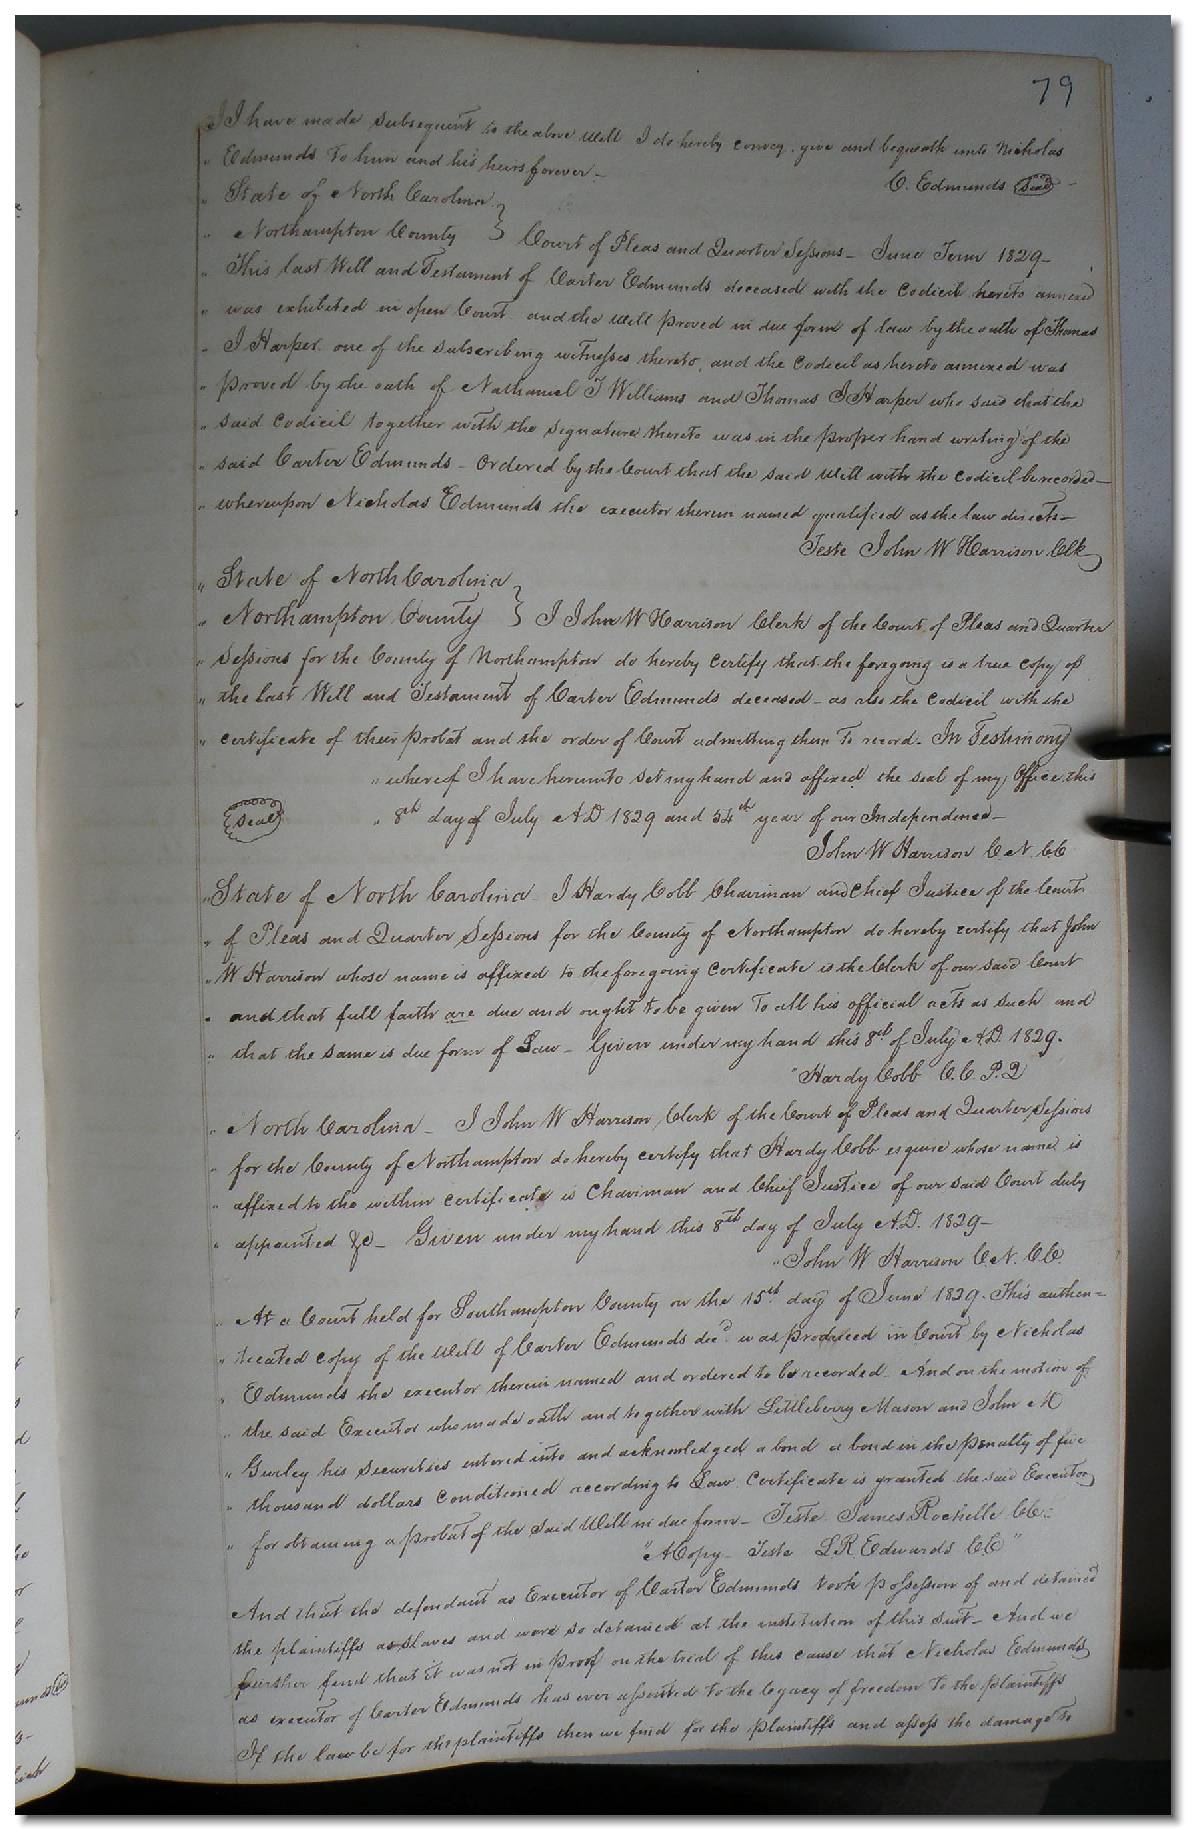 79
I have made subsequent to the above Will I do hereby convey, give and bequeath unto Nicholas
" Edmunds To him and his heirs forever –
C. Edmunds (Seal) –
" State of North Carolina }
" Northampton County } Court of Pleas and Quarter Sessions – June Term 1829 –
" This last Will and Testament of Carter Edmunds deceased with the Codicil hereto annexed
" was exhibited in open Court and the Will proved in due form of law by the oath of Thomas
" J Harper one of the subscribing witnesses thereto, and the Codicil as hereto annexed was
" proved by the oath of Nathaniel T Williams and Thomas J Harper who said that the
" said Codicil together with the signature thereto was in the proper hand writing of the
" said Carter Edmunds – Ordered by the Court that the said Will with the Codicil be recorded –
" whereupon Nicholas Edmunds the executor therein named qualified as the law directs –
Teste John W Harrison Clk
" State of North Carolina }
" Northampton County } I John W Harrison Clerk of the Court of Pleas and Quarter
" Sessions for the County of Northampton do hereby certify that the foregoing is a true copy of
" the last Will and Testament of Carter Edmunds deceased – as also the Codicil with the
" certificate of their Probat and the order of Court admitting them To record. In Testimony
" whereof I have hereunto set my hand and affixed the seal of my Office this
(Seal) " 8th day of July AD 1829 and 54th year of our Independence –
John W Harrison C.N.CC
" State of North Carolina – I Hardy Cobb Chairman and Chief Justice of the Court
" of Pleas and Quarter Sessions for the County of Northampton do hereby certify that John
" W Harrison whose name is affixed to the foregoing certificate is the Clerk of our said Court
" and that full faith are due and ought to be given To all his official acts as such and
" that the same is due form of Law – Given under my hand this 8th of July A.D. 1829.
" Hardy Cobb C.C.P.Q
" North Carolina – I John W Harrison, Clerk of the Court of Pleas and Quarter Sessions
" for the County of Northampton do hereby certify that Hardy Cobb esquire whose name is
" affixed to the within certificate is Chairman and Chief Justice of our said Court duly
" appointed &c – Given under my hand this 8th day of July A.D. 1829 –
" John W Harrison C.N.C.C.
" At a Court held for Southampton County on the 15th day of June 1829. This authen=
" ticated copy of the Will of Carter Edmunds decd. was produced in Court by Nicholas
" Edmunds the executor therein named and ordered to be recorded – And on the motion of
" the said Executor who made oath and together with Littleberry Mason and John M
" Gurley his securities entered into and acknowledged a bond a bond in the penalty of five
" thousand dollars conditioned according to Law certificate is granted the said Executor
" for obtaining a probat of the said Will in due form – Teste James Rochelle CC
" A Copy – Teste L R Edwards CC "
And that the defendant as Executor of Carter Edmunds took possession of and detained
the plaintiffs as slaves and were so detained at the institution of this suit – And we
further find that it was not in proof on the trial of this cause that Nicholas Edmunds
as executor of Carter Edmunds has ever assented to the legacy of freedom To the plaintiffs
If the law be for the plaintiffs then we find for the plaintiffs and assess the damages to